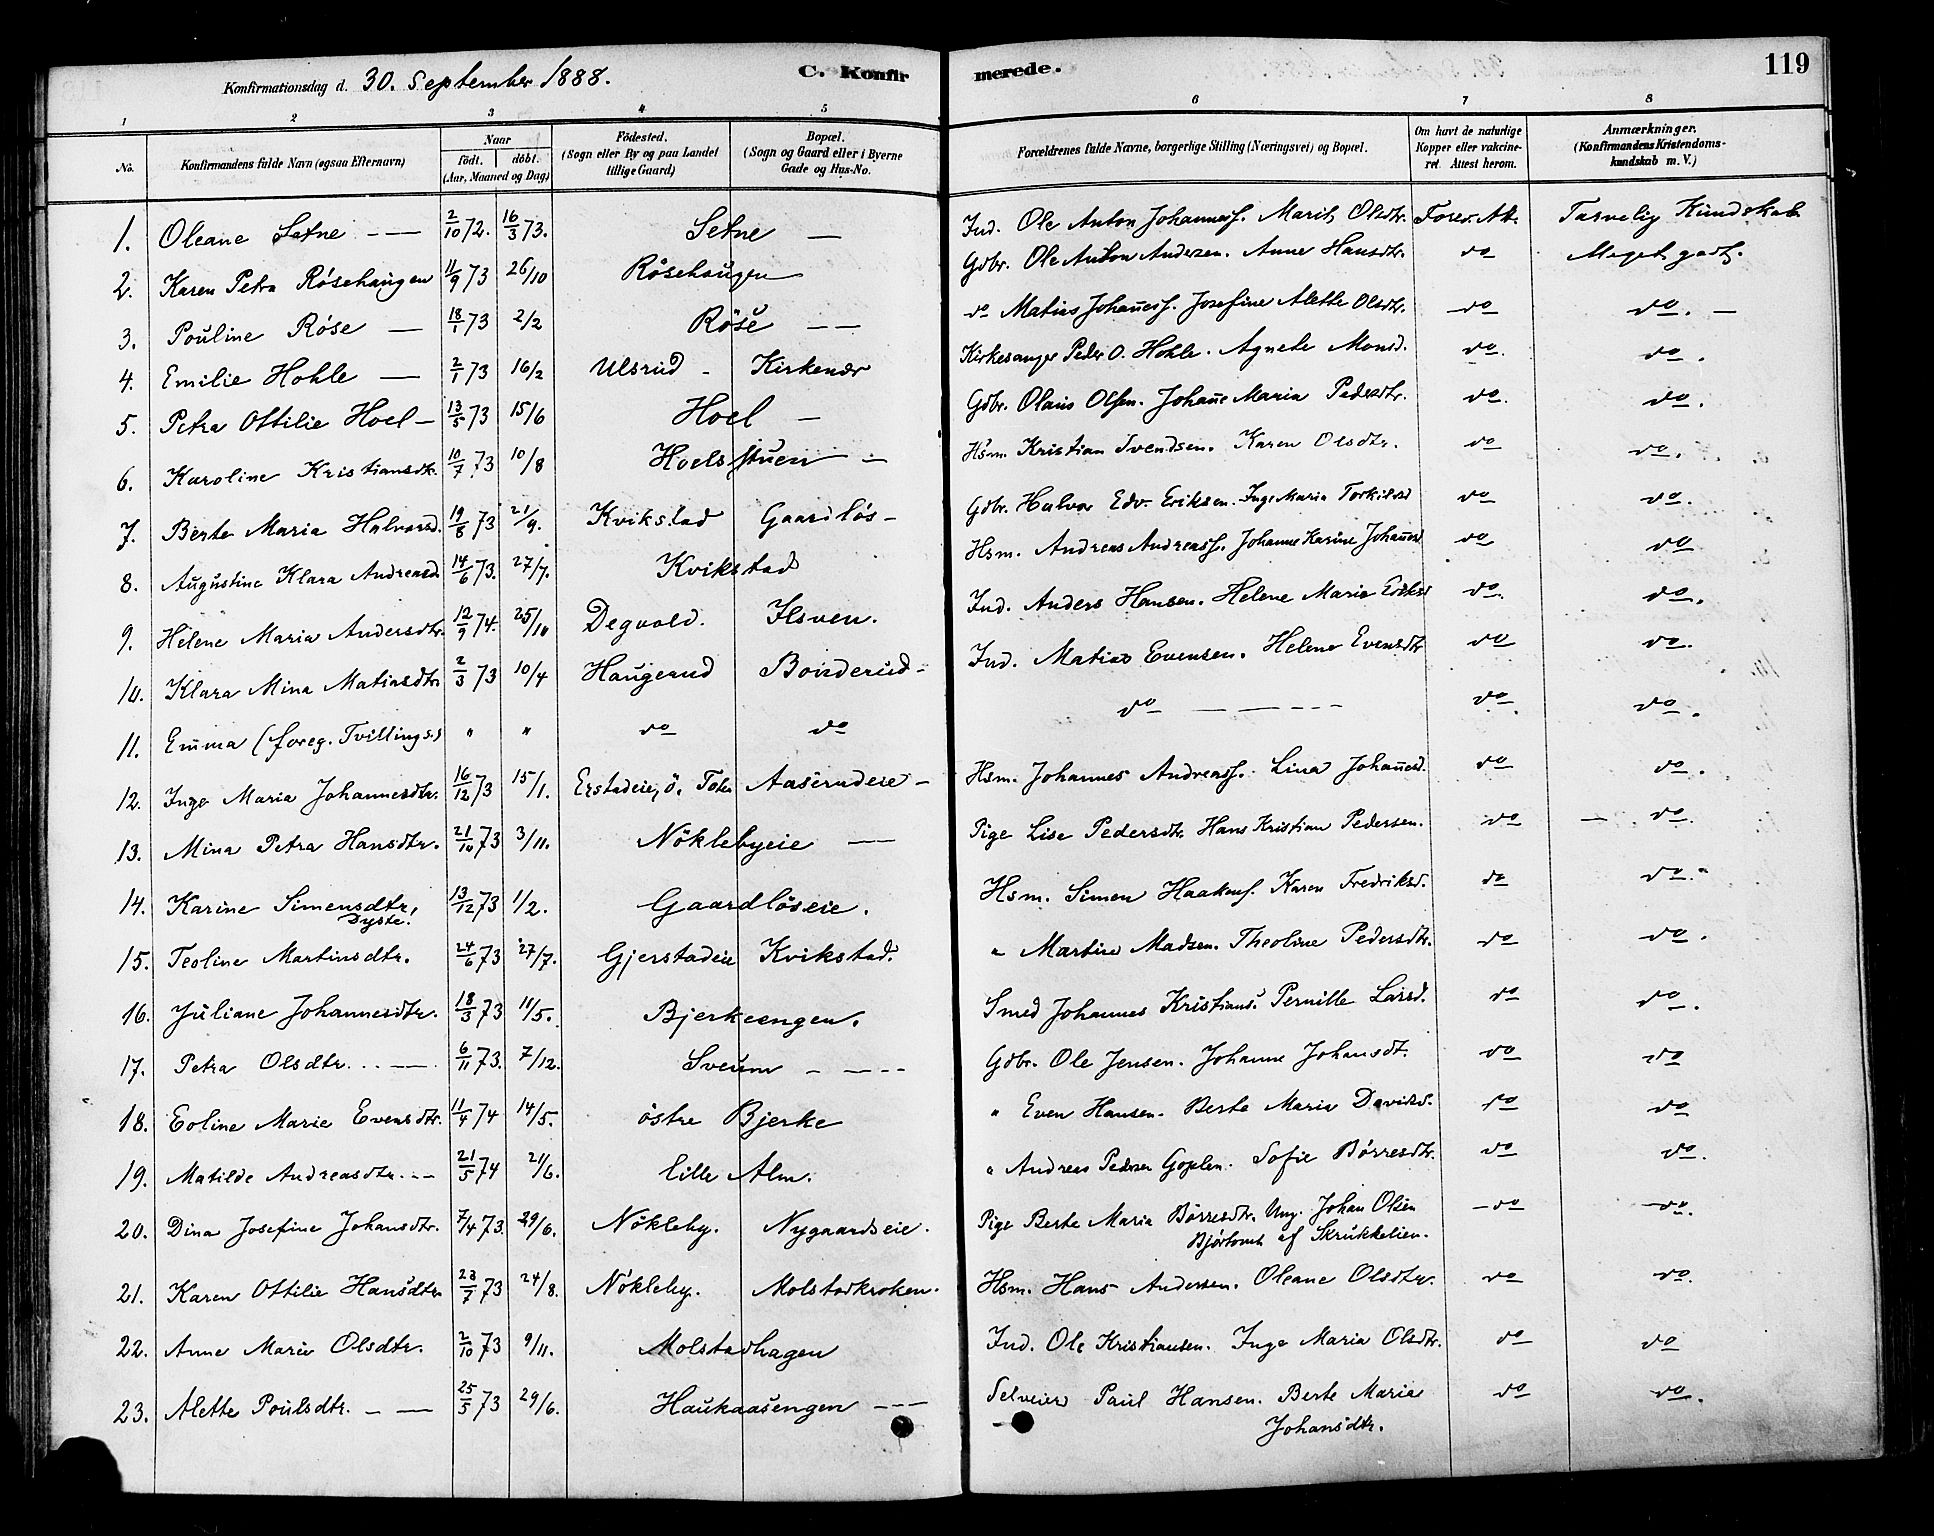 Konfirmationsdag d. 30. September 1888. C. Konfirmerede. 119
1 2 3 4 5 6 7 8
No. Konfirmandens fulde Navn (ogsaa Efternavn) Naar födt. döbt. (Aar, Maaned og Dag) Födested. (Sogn eller By og paa Landet tillige Gaard) Bopæl. (Sogn og Gaard eller i Byerne Gade og Hus-No. Forældrenes fulde Navne, borgerlige Stilling (Næringsvei) og Bopæl. Om havt de naturlige Kopper eller vakcineret. Attest herom. Anmærkninger. (Konfirmandens Kristendomskundskab m. V.)
1. Oleane Setne - — 2/10 72. 16/3 73. Setne — Ind. Ole Anton Johanness. Marit Olsdtr. Forev. Att. Tarvelig Kundskab
2. Karen Petra Rösehaugen 11/9 73 26/10 Rösehaugen Gdbr. Ole Anton Andersen. Anne Hansdtr. do Meget godt.
3. Pouline Röse — 18/1 73 2/2 Röse — — do Matias Johañess. Josefine Alette Olsdtr. do do. —
4. Emilie Hohle — 2/1 73 16/2 Ulsrud - Kirkenær Kirkesanger Peder O. Hohle. Agnete Monsd. do. do.
5. Petra Ottilie Hoel — 13/5 73 15/6 Hoel — Gdbr. Olaus Olsen. Johañe Maria Pedersdtr. do. do.
6. Karoline Kristiansdtr. 10/7 73 10/8 Hoelsstuen — Hsm. Kristian Svendsen. Karen Olsdtr. do do.
7. Berte Maria Halvorsd. 19/8 73 21/9. Kvikstad Gaardlös — Gdbr. Halvor Edv. Eriksen. Inge Maria Torkilsd do do.
8. Augustine Klara Andreasd. 14/6 73. 27/7. Kvikstad Hsm. Andreas Andreass. Johanne Karine Johañesd do do
9. Helene Maria Andersdtr. 12/9 74. 25/10 Degvold. Ilsven. Ind. Anders Hansen. Helene Marie Eriksd do. do.
10. Klara Mina Matiasdtr. 2/3 73 10/4 Haugerud Bonderud - Ind. Matias Evensen. Helene Evensdtr do do.
11. Emma (foreg. Tvillings.) " " do do do — - - - - do. do.
12. Inge Maria Johannesdtr. 16/12 73 15/1. Erstadeie, ö. Toten Aaserudeie - Hsm. Johannes Andreass. Lina Johañesd. do do.
13. Mina Petra Hansdtr. 21/10 73 3/11. Nöklebyeie — Pige Lise Pedersdtr. Hans Kristian Pedersen. do — do.
14. Karine Simensdtr. Dyste. 13/12 73 1/2. Gaardlöseie. Hsm. Simen Haakens. Karen Fredriksd. do do.
15. Teoline Martinsdtr. 24/6 73 27/7. Gjerstadeie Kvikstad. " Martin Madsen. Theoline Pedersdtr. do do.
16. Juliane Johannesdtr. 18/3 73 11/5. Bjerkeengen. Smed Johannes Kristians. Pernille Larsd. do do.
17. Petra Olsdtr. . . — 6/11 73. 7/12. Sveum - — - - Gdbr. Ole Jensen. Johanne Johansdt. do do
18. Eoline Marie Evensdtr. 11/4 74 14/5. östre Bjerke " Even Hansen. Berte Maria Davidsd. do do
19. Matilde Andreasdtr. - - 21/5 74 21/6. lille Alm. " Andreas Pedersen Goplen. Sofie Börresdtr. do do.
20. Dina Josefine Johansdtr. 7/4 73. 29/6. Nökleby. Nygaardseie. Pige Berte Maria Börresdtr. Ung. Johan Olsen - do - do.
Bjørtomt af Skrukkelien.
21. Karen Ottilie Hansdtr. 23/7 73 24/8. Nökleby. Molstadkroken. Hsm. Hans Andersen. Oleane Olsdtr. do do.
22. Anne Marie Olsdtr. 2/10 73 9/11. Molstadhagen Ind. Ole Kristiansen. Inge Maria Olsdtr. do do
23. Alette Poulsdtr. - — 25/5 73 29/6. Haukaasengen - - - Selveier Paul Hansen. Berte Maria do do.
Johansdtr.